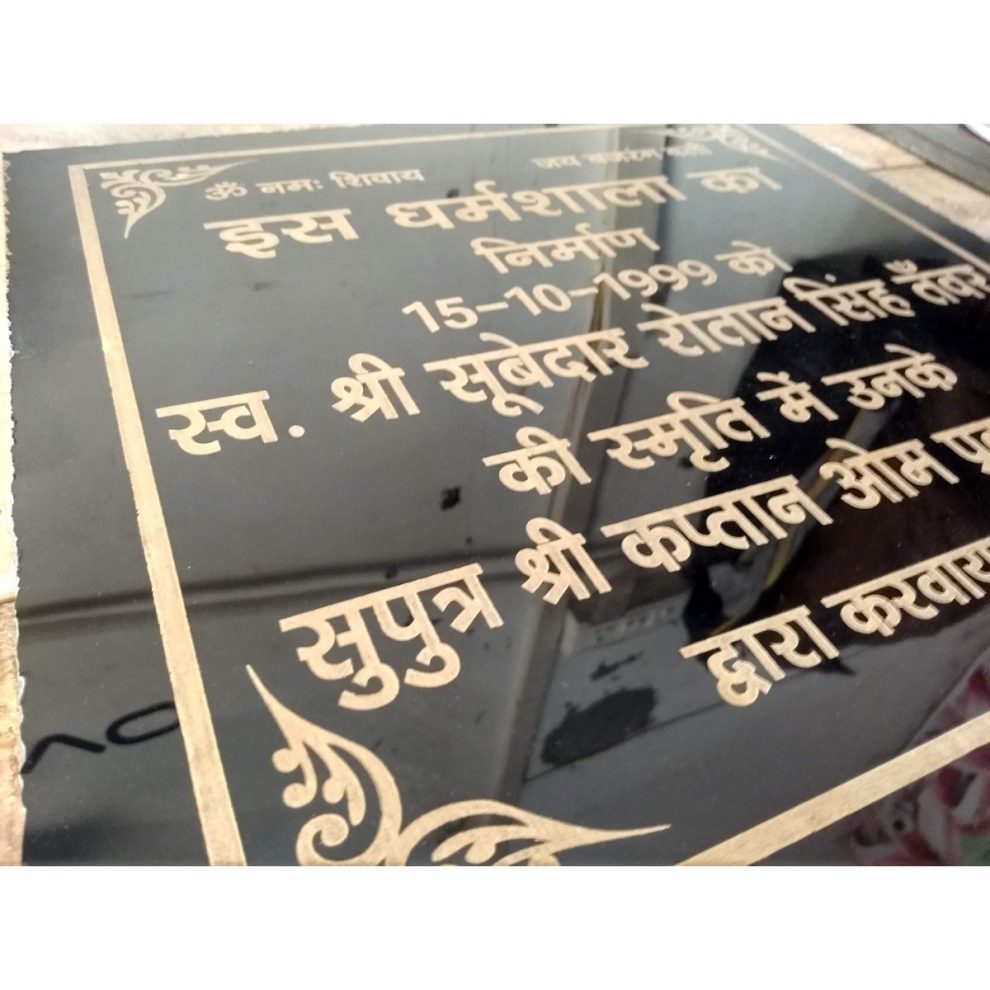 ॐ नमः शिवाय जय बजरंग बली
इस धर्मशाला का
निर्माण
15-10-1999 को
स्व. श्री सूबेदार रोतान सिंह तँवर
की स्मृति में उनके
सुपुत्र श्री कप्तान ओम
द्वारा